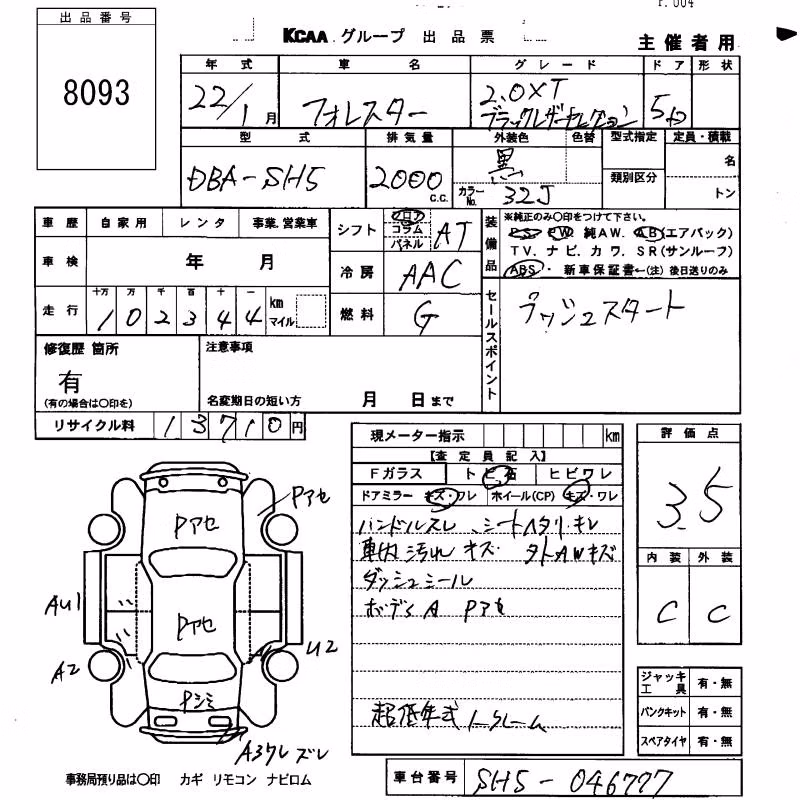 出品番号
8093
KCAA グループ 出品票
主催者用
年式 車名 グレード ドア 形状
22/1月 フォレスター 2.0XT
ブラックレザーセレクション 5D
型式 排気量 外装色 色替 型式指定 定員・積載
DBA-SH5 2000 C.C. 黒
カラーNo. 32J
類別区分
名
トン
車歴 自家用 レンタ 事業.営業車
シフト フロア コラム パネル AT
装備品
※純正のみ〇印をつけて下さい。
PS PW 純AW. AB(エアバック)
TV. ナビ. カワ. SR(サンルーフ)
ABS・ 新車保証書←(注) 後日送りのみ
車検 年 月
冷房 AAC
走行 十万 万 千 百 十 一
102344 km マイル
燃料 G
セールスポイント
プッシュスタート
修復歴 箇所
有
(有の場合は〇印を)
注意事項
名変期日の短い方 月 日まで
リサイクル料 13710円
現メーター指示 km
【査定員記入】
Fガラス トビ石 ヒビワレ
ドアミラー キズ・ワレ ホイール(CP) キズ・ワレ
ハンドルスレ、シートヘタリ・キレ
車内汚れ キズ. タトAWキズ
ダッシュシール
ボディA Pアセ
超低年式 ノークレーム
評価点
3.5
内装 外装
C C
ジャッキ工具 有・無
パンクキット 有・無
スペアタイヤ 有・無
Pアセ
Pアセ
Pアセ
Pシミ
AU1
A2
U2
A3ワレ ズレ
事務局預り品は〇印 カギ リモコン ナビロム
車台番号 SH5-046777